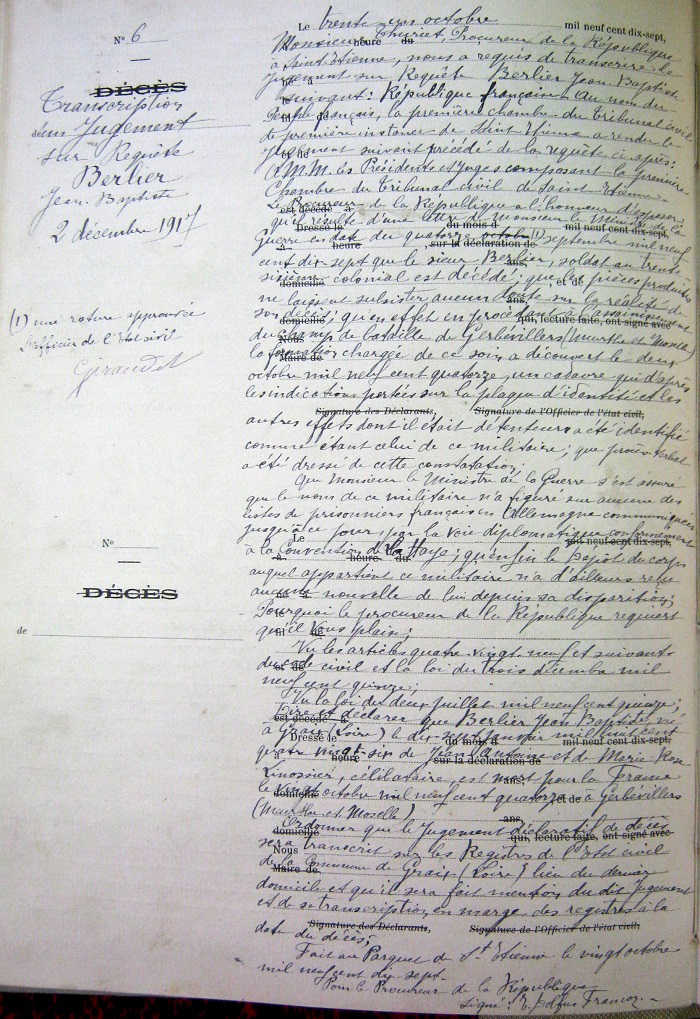 Nº 6
DÉCÈS
Transcription
d'un Jugement
sur Requête
Berlier
Jean Baptiste
2 décembre 1917
(1) une rature approuvée
L'officier de l'Etat civil
Giraudet
Nº
DÉCÈS
de
Le trente un octobre mil neuf cent dix-sept,
heure du
Monsieur Thuriet, Procureur de la République
à Saint Etienne, nous a requis de transcrire le
jugement sur Requête Berlier Jean Baptiste
suivant: République française Au nom du
Peuple français, la première chambre du tribunal civil
de première instance de Saint Etienne a rendu le
jugement suivant précédé de la requête ci après:
à M.M. les Présidents et Juges composant la première
Chambre du Tribunal civil de Saint Etienne
Le Procureur de la République a l'honneur d'exposer
est décédé à
qu'il résulte d'une lettre de monsieur le Ministre de la
Dressé le du mois d mil neuf cent dix-sept,
Guerre en date du quatorze octobre (1) septembre mil neuf
à heure sur la déclaration de
cent dix sept que le sieur Berlier, soldat au trente
ans,
sixième colonial est décédé; que les pièces produites
domicilié et de
ne laissent subsister aucun doute sur la réalité de
ans,
son décès; qu'en effet en procédant à l'assainissement
domicilié qui, lecture faite, ont signé avec
du champ de bataille de Gerbévillers (Meurthe et Moselle)
Nous
la formation chargée de ce soin a découvert le deux
Maire de
octobre mil neuf cent quatorze, un cadavre qui d'après
les indications portées sur la plaque d'identité et les
Signature des Déclarants, Signature de l'Officier de l'état civil,
autres effets dont il était détenteur a été identifié
comme étant celui de ce militaire; que procès verbal
a été dressé de cette constatation;
Que Monsieur le Ministre de la Guerre s'est assuré
que le nom de ce militaire n'a figuré sur aucune des
listes de prisonniers français en Allemagne communiquées
jusqu'à ce jour, par la voie diplomatique conformément
Le mil neuf cent dix-sept,
à la Convention de la Haye; qu'enfin le Dépôt du corps
à heure du
auquel appartient ce militaire n'a d'ailleurs reçu
aucune nouvelle de lui depuis sa disparition;
Pourquoi le procureur de la République requiert
qu'il vous plaise;
Vu les articles quatre vingt neuf et suivants
du code civil et la loi du trois décembre mil
neuf cent quinze;
Vu la loi du deux juillet mil neuf cent quinze;
Dire et déclarer que Berlier Jean Baptiste, né
est décédé à
à Graix (Loire) le dix-sept janvier mil huit cent
Dressé le du mois d mil neuf cent dix-sept,
quatre vingt-six de Jean Antoine et de Marie Rose
à heure sur la déclaration de
Linossier, célibataire, est mort pour la France
ans,
le vingt octobre mil neuf cent quatorze à Gerbévillers
domicilié et de
(Meurthe et Moselle)
ans,
Ordonner que le Jugement déclaratif de décès
domicilié qui, lecture faite, ont signé avec
sera transcrit sur les Registres de l'Etat civil
Nous
de la Commune de Graix (Loire) lieu du dernier
Maire de
domicile et qu'il sera fait mention du dit Jugement
et de sa transcription en marge des registres à la
Signature des Déclarants, Signature de l'Officier de l'état civil,
date du décès;
Fait au Parquet de St Etienne le vingt octobre
mil neuf cent dix sept
Pour le Procureur de la République
Signé: